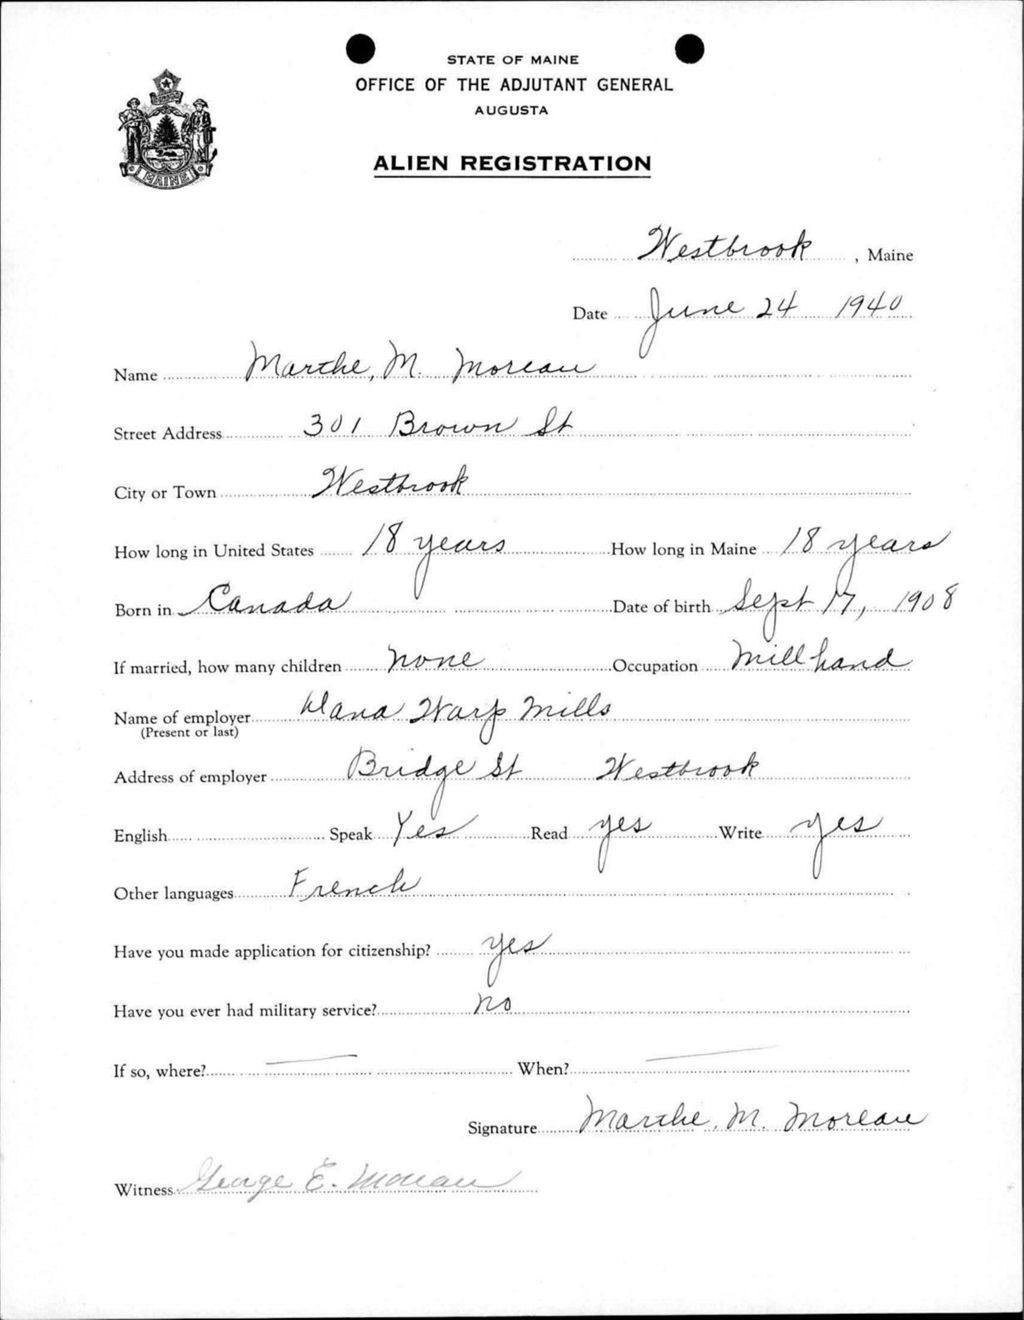 STATE OF MAINE
OFFICE OF THE ADJUTANT GENERAL
AUGUSTA
ALIEN REGISTRATION
MAINE
Westbrook, Maine
Date June 24 1940
Name Marthe, M. Moreau
Street Address 301 Brown St
City or Town Westbrook
How long in United States 18 years How long in Maine 18 years
Born in Canada Date of birth Sept 17, 1908
If married, how many children none Occupation Mill hand
Name of employer Dana Warp Mills
(Present or last)
Address of employer Bridge St Westbrook
English Speak Yes Read yes Write yes
Other languages French
Have you made application for citizenship? yes
Have you ever had military service? no
If so, where? — When? —
Signature Marthe, M. Moreau
Witness George E. Moreau